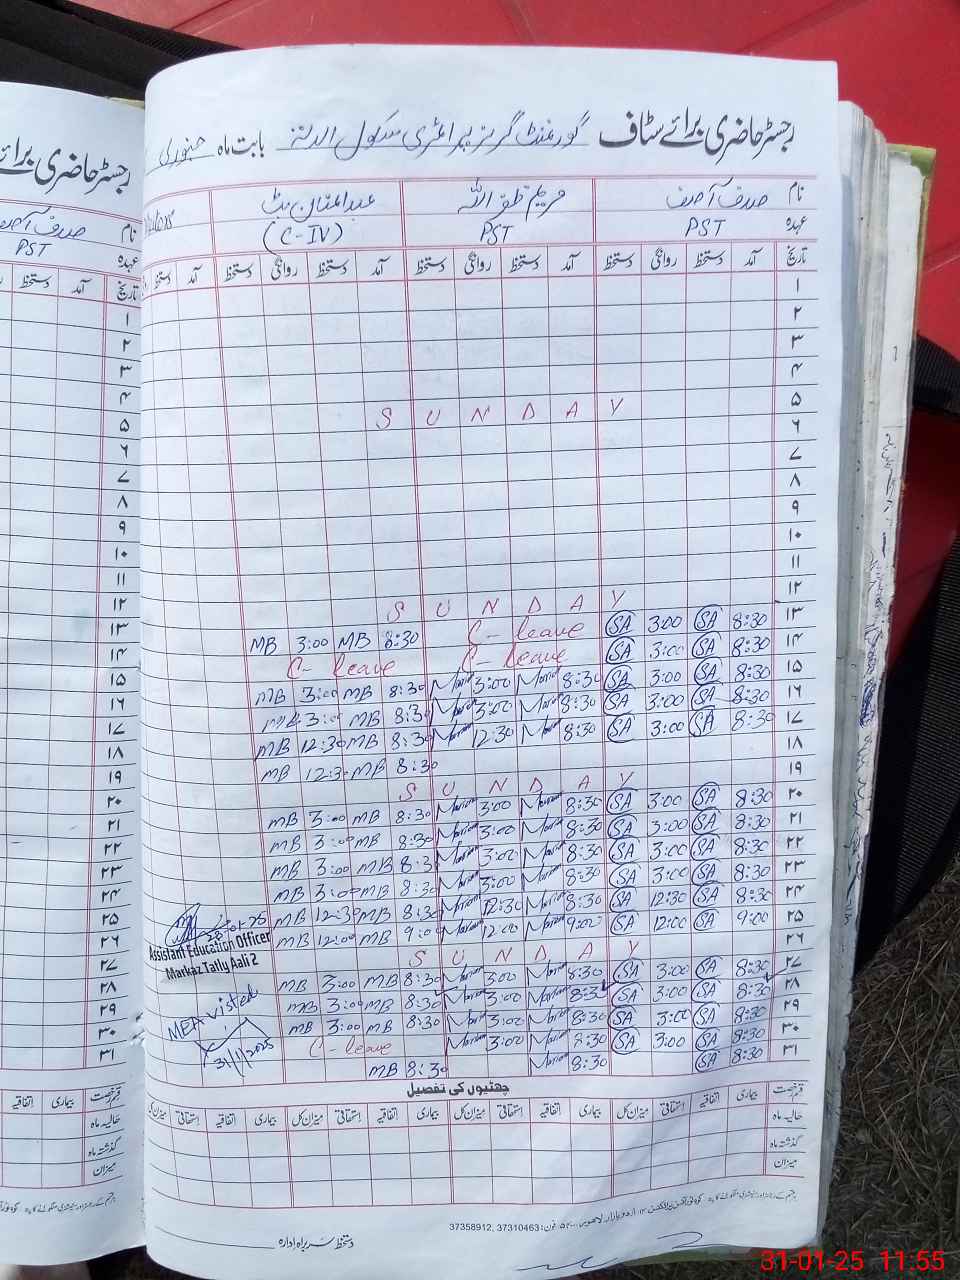 رجسٹر حاضری برائے سٹاف گورنمنٹ گرلز پرائمری سکول بابت ماہ جنوری
نام صدف آصف مریم ظفر اللہ عبدالمنان بٹ
عہدہ PST PST (C-IV)
تاریخ آمد دستخط روانگی دستخط آمد دستخط روانگی دستخط آمد دستخط روانگی دستخط آمد دستخط
۱
۲
۳
۴
۵ S U N D A Y
۶
۷
۸
۹
۱۰
۱۱
۱۲ S U N D A Y
۱۳ 8:30 SA 3:00 SA C-leave 8:30 MB 3:00 MB
۱۴ 8:30 SA 3:00 SA C-leave C-leave
۱۵ 8:30 SA 3:00 SA 8:30 Mariam 3:00 Mariam 8:30 MB 3:00 MB
۱۶ 8:30 SA 3:00 SA 8:30 Mariam 3:00 Mariam 8:30 MB 3:00
۱۷ 8:30 SA 3:00 SA 8:30 Mariam 12:30 Mariam 8:30 MB 12:30 MB
۱۸ 8:30 MB 12:30 MB
۱۹ S U N D A Y
۲۰ 8:30 SA 3:00 SA 8:30 Mariam 3:00 Mariam 8:30 MB 3:00 MB
۲۱ 8:30 SA 3:00 SA 8:30 Mariam 3:00 Mariam 8:30 MB 3:00 MB
۲۲ 8:30 SA 3:00 SA 8:30 Mariam 3:00 Mariam 8:3 MB 3:00 MB
۲۳ 8:30 SA 3:00 SA 8:30 Mariam 3:00 Mariam 8:30 MB 3:00 MB
۲۴ 8:30 SA 12:30 SA 8:30 Mariam 12:30 Mariam 8:30 MB 12:30 MB
۲۵ 9:00 SA 12:00 SA 9:00 Mariam 12:00 Mariam 9:00 MB 12:00 MB
۲۶ S U N D A Y
۲۷ 8:30 SA 3:00 SA 8:30 Mariam 3:00 Mariam 8:30 MB 3:00 MB
۲۸ 8:30 SA 3:00 SA 8:30 Mariam 3:00 Mariam 8:30 MB 3:00 MB
۲۹ 8:30 SA 3:00 SA 8:30 Mariam 3:00 Mariam 8:30 MB 3:00 MB
۳۰ 8:30 SA 3:00 SA 8:30 Mariam 3:00 Mariam C-leave
۳۱ 8:30 SA 8:30 Mariam 8:30 MB
Assistant Education Officer
Markaz Tatly Aali 2
MEA visted
31/1/2025
چھٹیوں کی تفصیل
قسم رخصت بیماری اتفاقیہ استحقاقی میزان کل بیماری اتفاقیہ استحقاقی میزان کل بیماری اتفاقیہ استحقاقی میزان کل بیماری اتفاقیہ استحقاقی میزان کل
حالیہ ماہ
گذشتہ ماہ
میزان
اردو بازار لاہور فون: 37310463, 37358912
دستخط سربراہ ادارہ
رجسٹر حاضری برائے
نام صدف آصف
عہدہ PST
تاریخ آمد دستخط
۱
۲
۳
۴
۵
۶
۷
۸
۹
۱۰
۱۱
۱۲
۱۳
۱۴
۱۵
۱۶
۱۷
۱۸
۱۹
۲۰
۲۱
۲۲
۲۳
۲۴
۲۵
۲۶
۲۷
۲۸
۲۹
۳۰
۳۱
قسم رخصت بیماری اتفاقیہ
حالیہ ماہ
گذشتہ ماہ
میزان
31-01-25 11:55